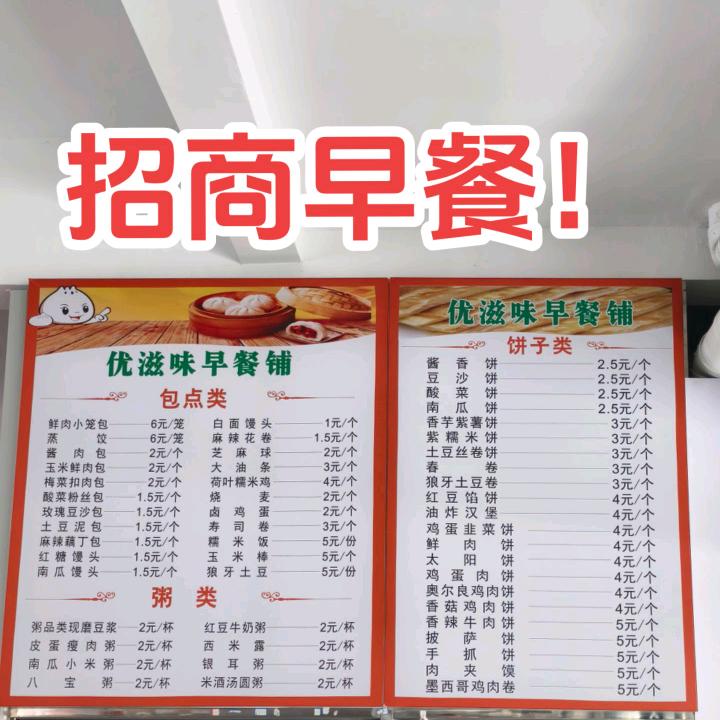 招商早餐!
优滋味早餐铺
包点类
鲜肉小笼包 6元/笼 白面馒头 1元/个
蒸饺 6元/笼 麻辣花卷 1.5元/个
酱肉包 2元/个 芝麻球 2元/个
玉米鲜肉包 2元/个 大油条 3元/个
梅菜扣肉包 2元/个 荷叶糯米鸡 4元/个
酸菜粉丝包 1.5元/个 烧麦 2元/个
玫瑰豆沙包 1.5元/个 卤鸡蛋 2元/个
土豆泥包 1.5元/个 寿司卷 3元/个
麻辣藕丁包 1.5元/个 糯米饭 5元/份
红糖馒头 1.5元/个 玉米棒 5元/个
南瓜馒头 1.5元/个 狼牙土豆 5元/份
粥类
粥品类现磨豆浆 2元/杯 红豆牛奶粥 2元/杯
皮蛋瘦肉粥 2元/杯 西米露 2元/杯
南瓜小米粥 2元/杯 银耳粥 2元/杯
八宝粥 2元/杯 米酒汤圆粥 2元/杯
优滋味早餐铺
饼子类
酱香饼 2.5元/个
豆沙饼 2.5元/个
酸菜饼 2.5元/个
南瓜饼 2.5元/个
香芋紫薯饼 3元/个
紫糯米饼 3元/个
土豆丝卷饼 3元/个
春卷 3元/个
狼牙土豆卷 3元/个
红豆馅饼 4元/个
油炸汉堡 4元/个
鸡蛋韭菜饼 4元/个
鲜肉饼 4元/个
太阳饼 4元/个
鸡蛋肉饼 4元/个
奥尔良鸡肉饼 4元/个
香菇鸡肉饼 4元/个
香辣牛肉饼 5元/个
披萨饼 5元/个
手抓饼 5元/个
肉夹馍 5元/个
墨西哥鸡肉卷 5元/个